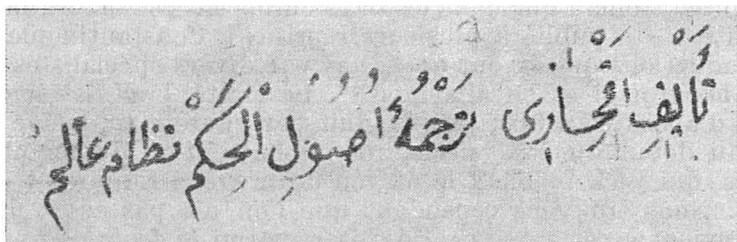 تَأْلِيفِ اَقْحِصَارِى تَرْجَمَهُٔ اُصُولِ الْحِكَمْ نظام عالم